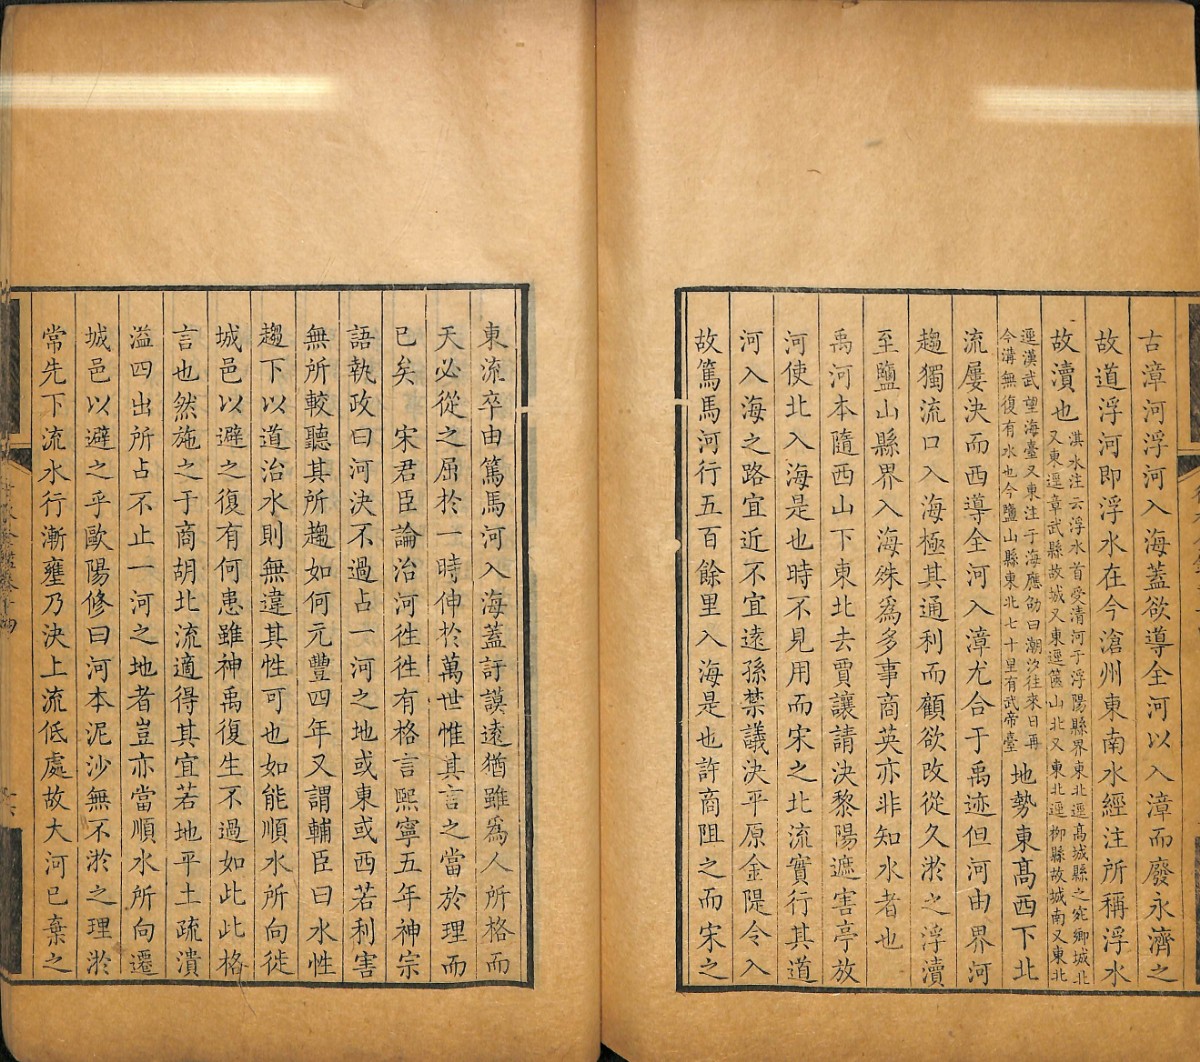 古漳河浮河入海蓋欲導全河以入漳而廢永濟之
故道浮河即浮水在今滄州東南水經注所稱浮水
故瀆也淇水注云浮水首受清河于浮陽縣界東北逕高城縣之宛鄉城北
又東逕章武縣故城又東逕篋山北又東北逕柳縣故城南又東北
逕漢武望海臺又東注于海應劭曰潮汐往來日再
今溝無復有水也今鹽山縣東北七十里有武帝臺地勢東高西下北
流屢決而西導全河入漳尤合于禹迹但河由界河
趨獨流口入海極其通利而顧欲改從久淤之浮瀆
至鹽山縣界入海殊為多事商英亦非知水者也
禹河本隨西山下東北去賈讓請決黎陽遮害亭放
河使北入海是也時不見用而宋之北流實行其道
河入海之路宜近不宜遠孫禁議決平原金隄令入
故篤馬河行五百餘里入海是也許商阻之而宋之
東流卒由篤馬河入海蓋訏謨遠猶雖為人所格而
天必從之屈於一時伸於萬世惟其言之當於理而
已矣宋君臣論治河徃徃有格言熙寧五年神宗
語執政曰河決不過占一河之地或東或西若利害
無所較聽其所趨如何元豐四年又謂輔臣曰水性
趨下以道治水則無違其性可也如能順水所向徙
城邑以避之復有何患雖神禹復生不過如此此格
言也然施之于商胡北流適得其宜若地平土疏潰
溢四出所占不止一河之地者豈亦當順水所向遷
城邑以避之乎歐陽修曰河本泥沙無不淤之理淤
常先下流水行漸壅乃決上流低處故大河已棄之